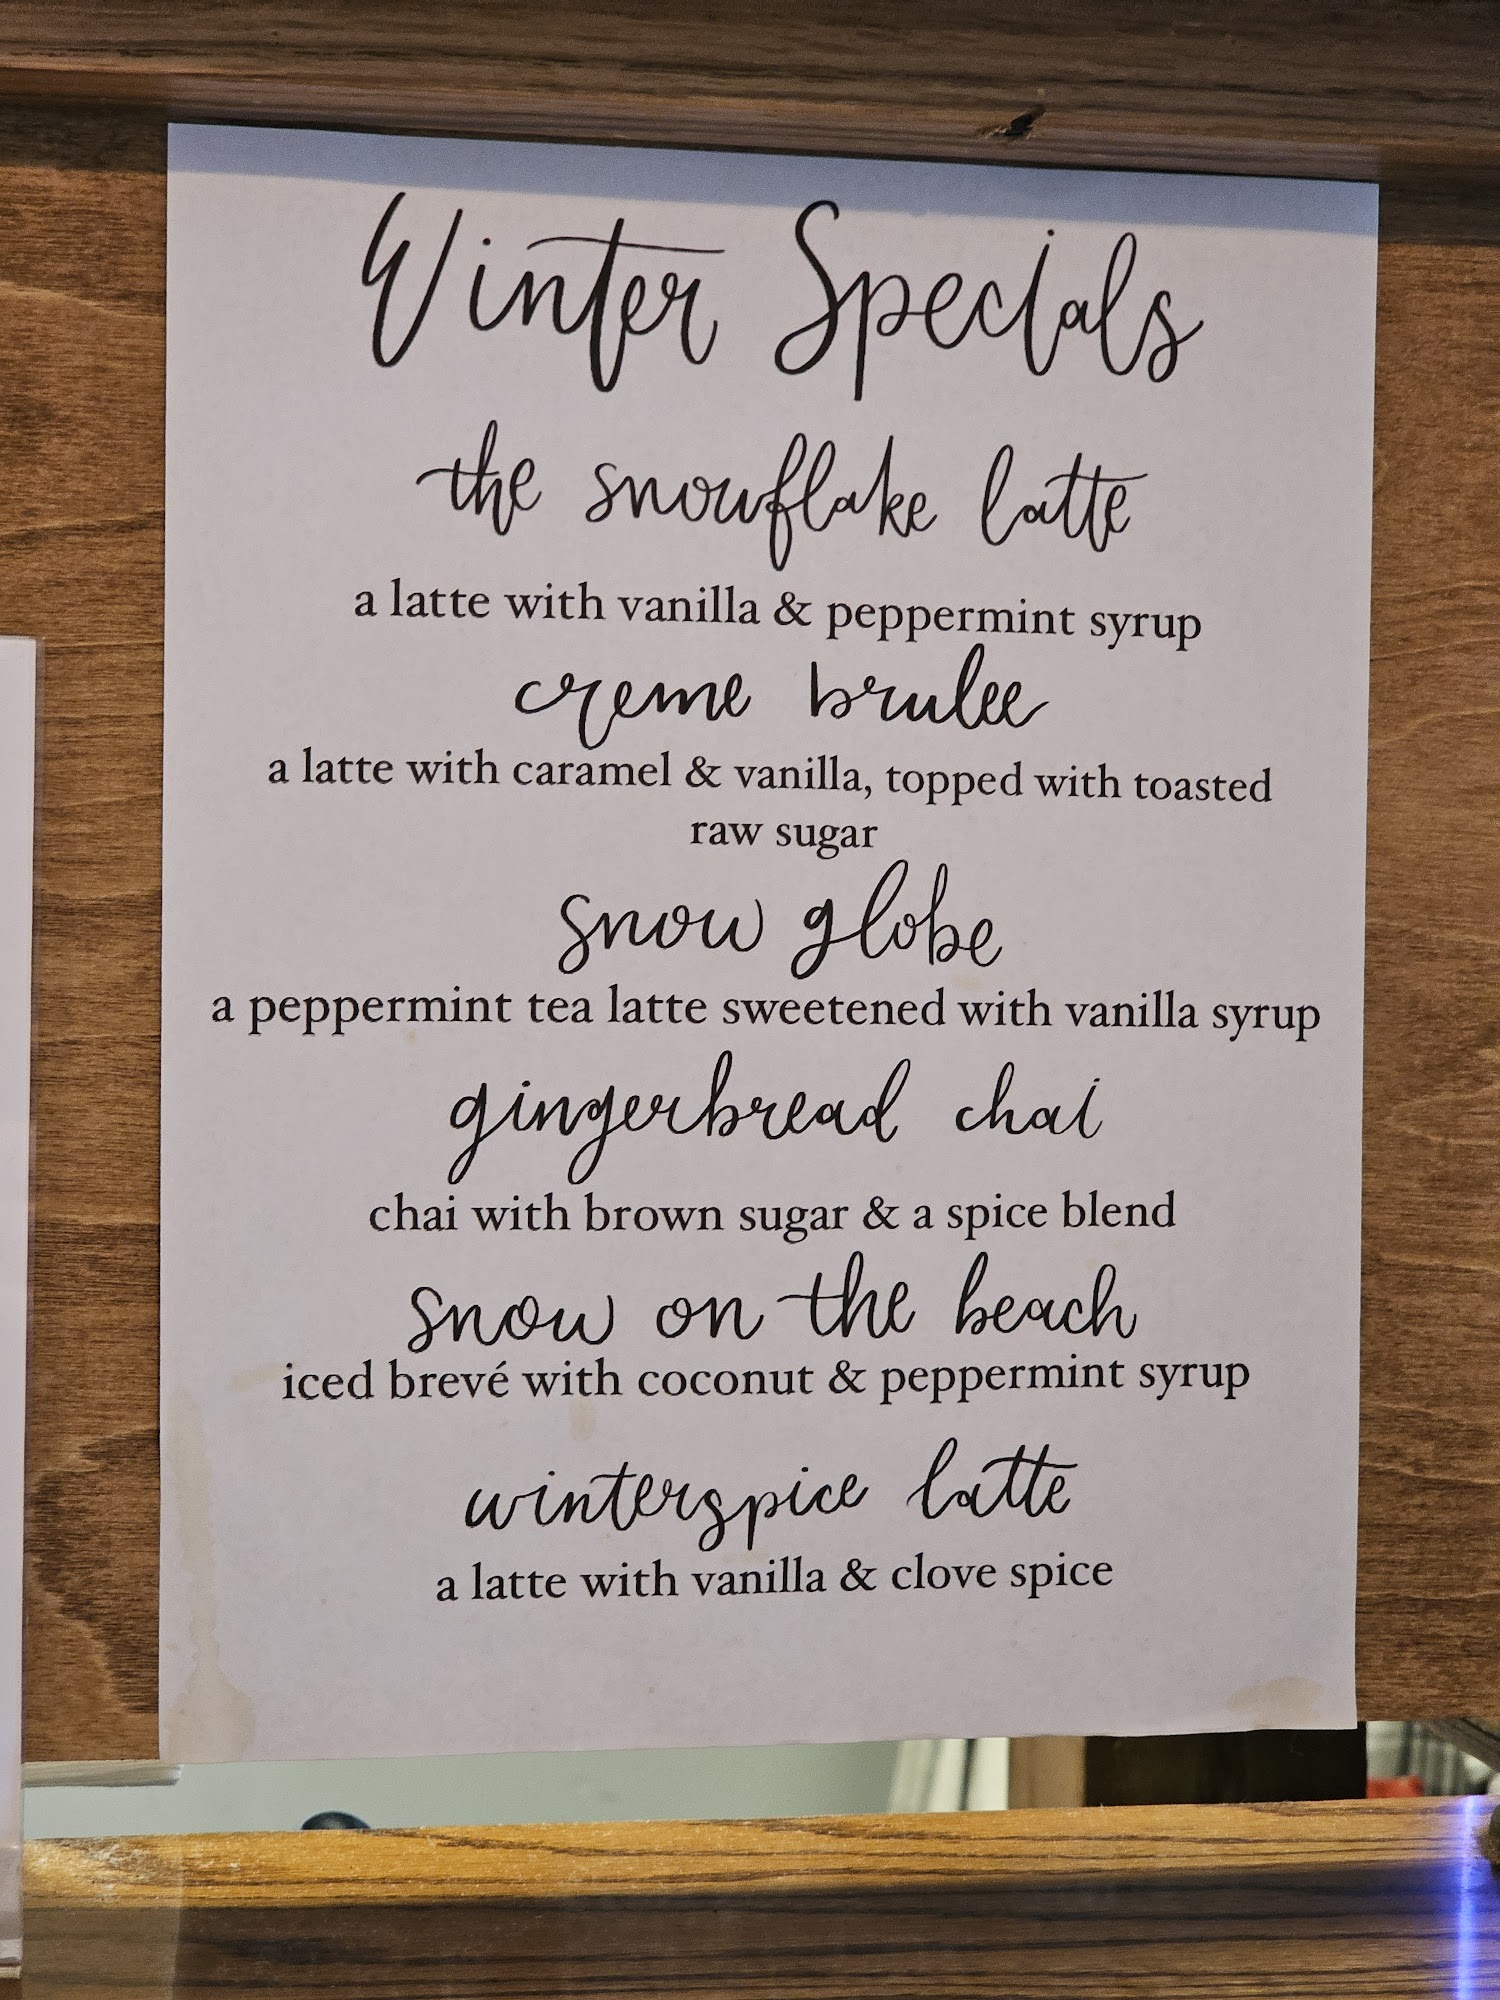 Winter Specials
the snowflake latte
a latte with vanilla & peppermint syrup
creme brulee
a latte with caramel & vanilla, topped with toasted
raw sugar
snow globe
a peppermint tea latte sweetened with vanilla syrup
gingerbread chai
chai with brown sugar & a spice blend
snow on the beach
iced brevé with coconut & peppermint syrup
winterspice latte
a latte with vanilla & clove spice